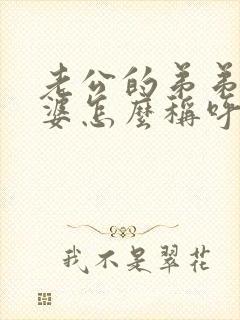 老公的弟弟
婆怎麼稱呼
我不是翠花